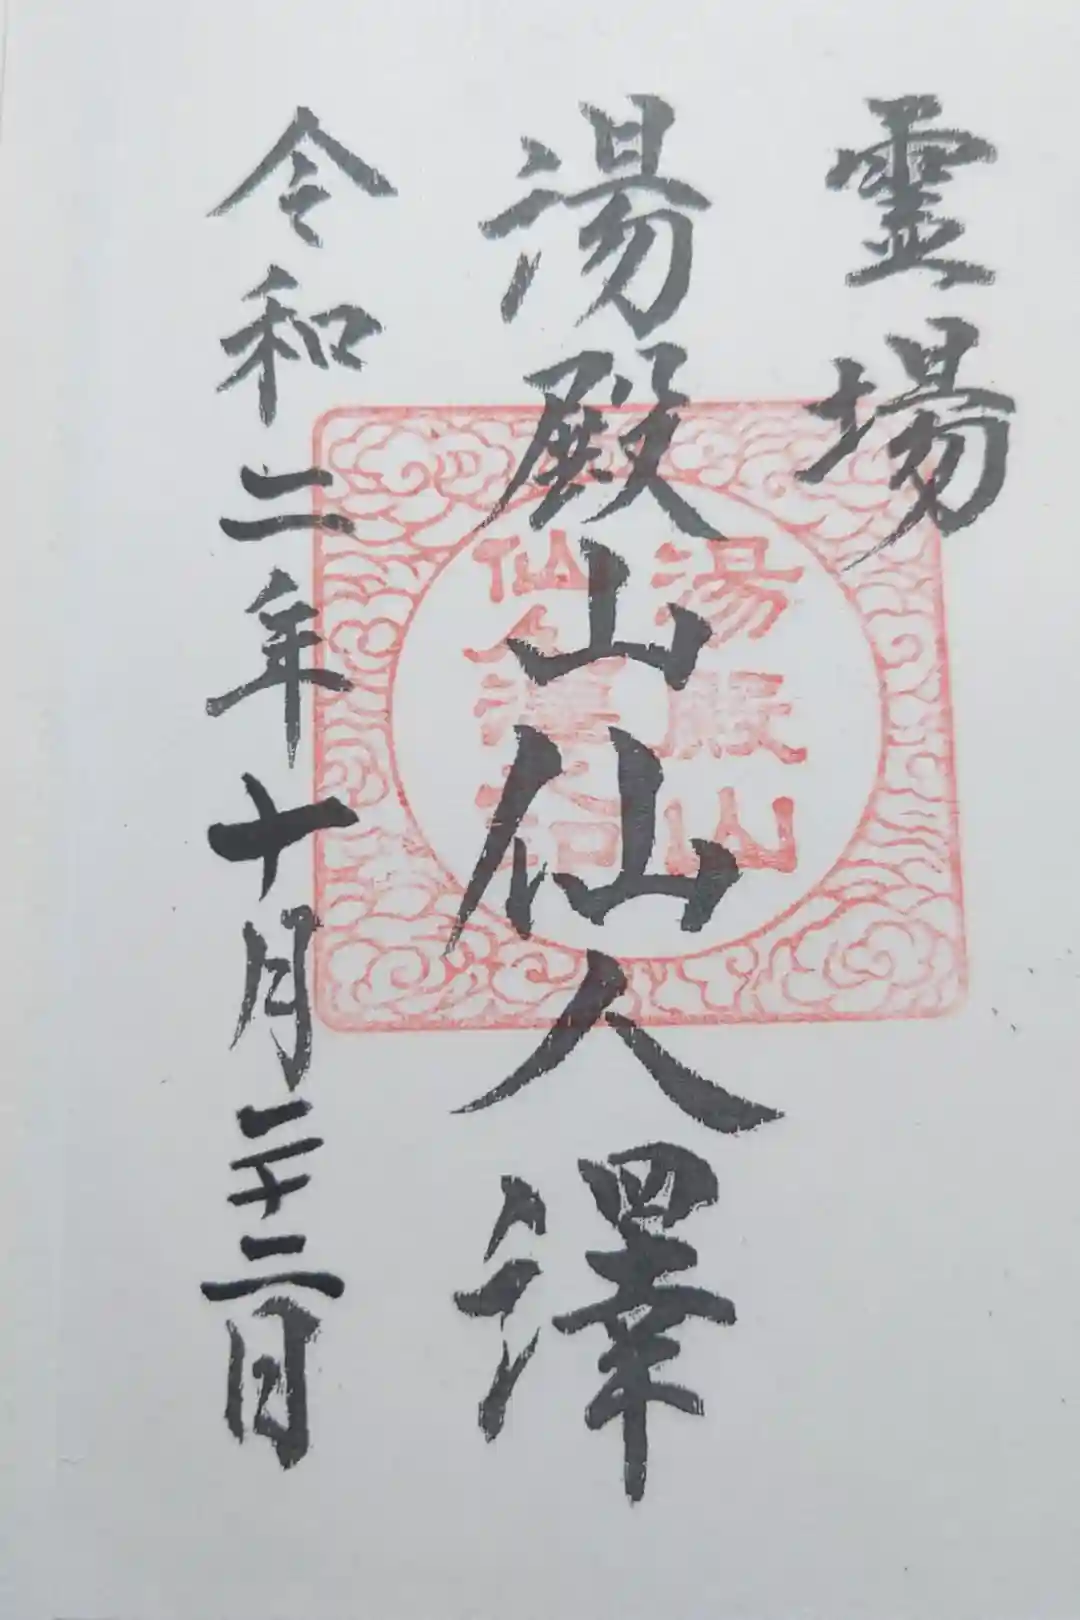 霊場
湯殿山仙人澤
令和二年十月二十二日
湯殿山
仙人澤之印